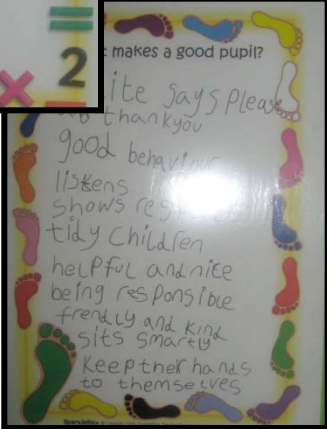 =
2
×
t makes a good pupil?
ite says Please
thankyou
good behaviour
listens
shows
tidy children
helpful and nice
being responsible
frendly and kind
sits smartly
keep their hands
to themselves